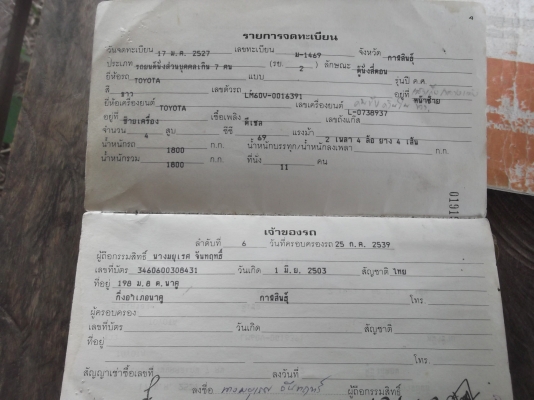 รายการจดทะเบียน
วันจดทะเบียน 17 ม.ค. 2527 เลขทะเบียน ม-1469 จังหวัด กาฬสินธุ์
ประเภท รถยนต์นั่งส่วนบุคคลเกิน 7 คน (รย. 2 ) ลักษณะ ตู้นั่งสี่ตอน
ยี่ห้อรถ TOYOTA แบบ รุ่นปี ค.ศ.
สี ขาว เลขตัวรถ LM60V-0016391 อยู่ที่ หน้าซ้าย
ยี่ห้อเครื่องยนต์ TOYOTA เลขเครื่องยนต์ L-0738937
อยู่ที่ ซ้ายเครื่อง เชื้อเพลิง ดีเซล เลขถังแก๊ส
จำนวน 4 สูบ ซีซี 69 แรงม้า 2 เพลา 4 ล้อ ยาง 4 เส้น
น้ำหนักรถ 1800 ก.ก. น้ำหนักบรรทุก/น้ำหนักลงเพลา ก.ก.
น้ำหนักรวม 1800 ก.ก. ที่นั่ง 11 คน
เจ้าของรถ
ลำดับที่ 6 วันที่ครอบครองรถ 25 ก.ค. 2539
ผู้ถือกรรมสิทธิ์ นางมยุเรศ จันทฤทธิ์
เลขที่บัตร 3460600308431 วันเกิด 1 มิ.ย. 2503 สัญชาติ ไทย
ที่อยู่ 198 ม.8 ต.นาคู
กิ่งอำเภอนาคู กาฬสินธุ์ โทร
ผู้ครอบครอง
เลขที่บัตร วันเกิด สัญชาติ
ที่อยู่
โทร.
สัญญาเช่าซื้อเลขที่ ลงวันที่
ลงชื่อ ผู้ถือกรรมสิทธิ์